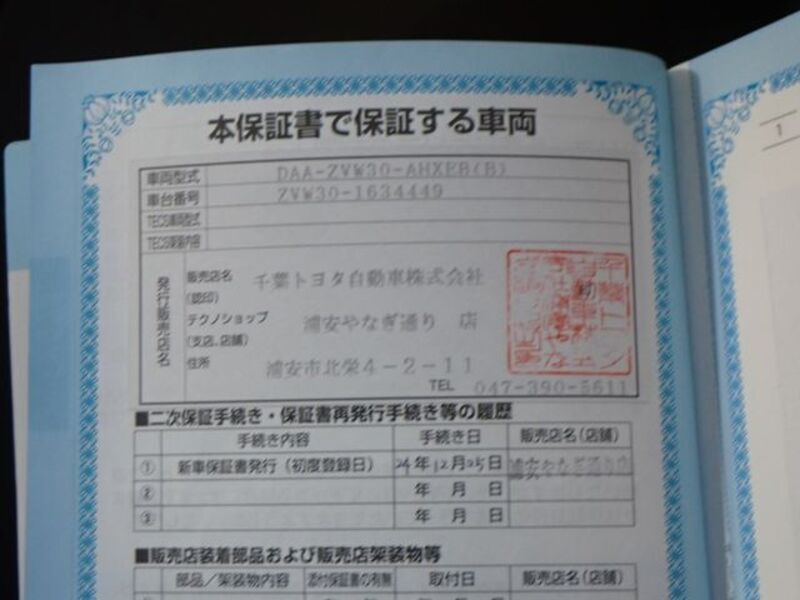 本保証書で保証する車両
車両型式 DAA-ZVW30-AHXEB(B)
車台番号 ZVW30-1634449
TECS車両型式
TECS架装内容
発行販売店名
販売店名 千葉トヨタ自動車株式会社
(認印)
テクノショップ 浦安やなぎ通り 店
(支店、店舗)
住所 浦安市北栄4-2-11
TEL 047-390-5611
■二次保証手続き・保証書再発行手続き等の履歴
手続き内容 手続き日 販売店名(店舗)
① 新車保証書発行(初度登録日) 24年12月25日 浦安やなぎ通り店
② 年 月 日
③ 年 月 日
■販売店装着部品および販売店架装物等
部品/架装物内容 添付保証書の有無 取付日 販売店名(店舗)
1